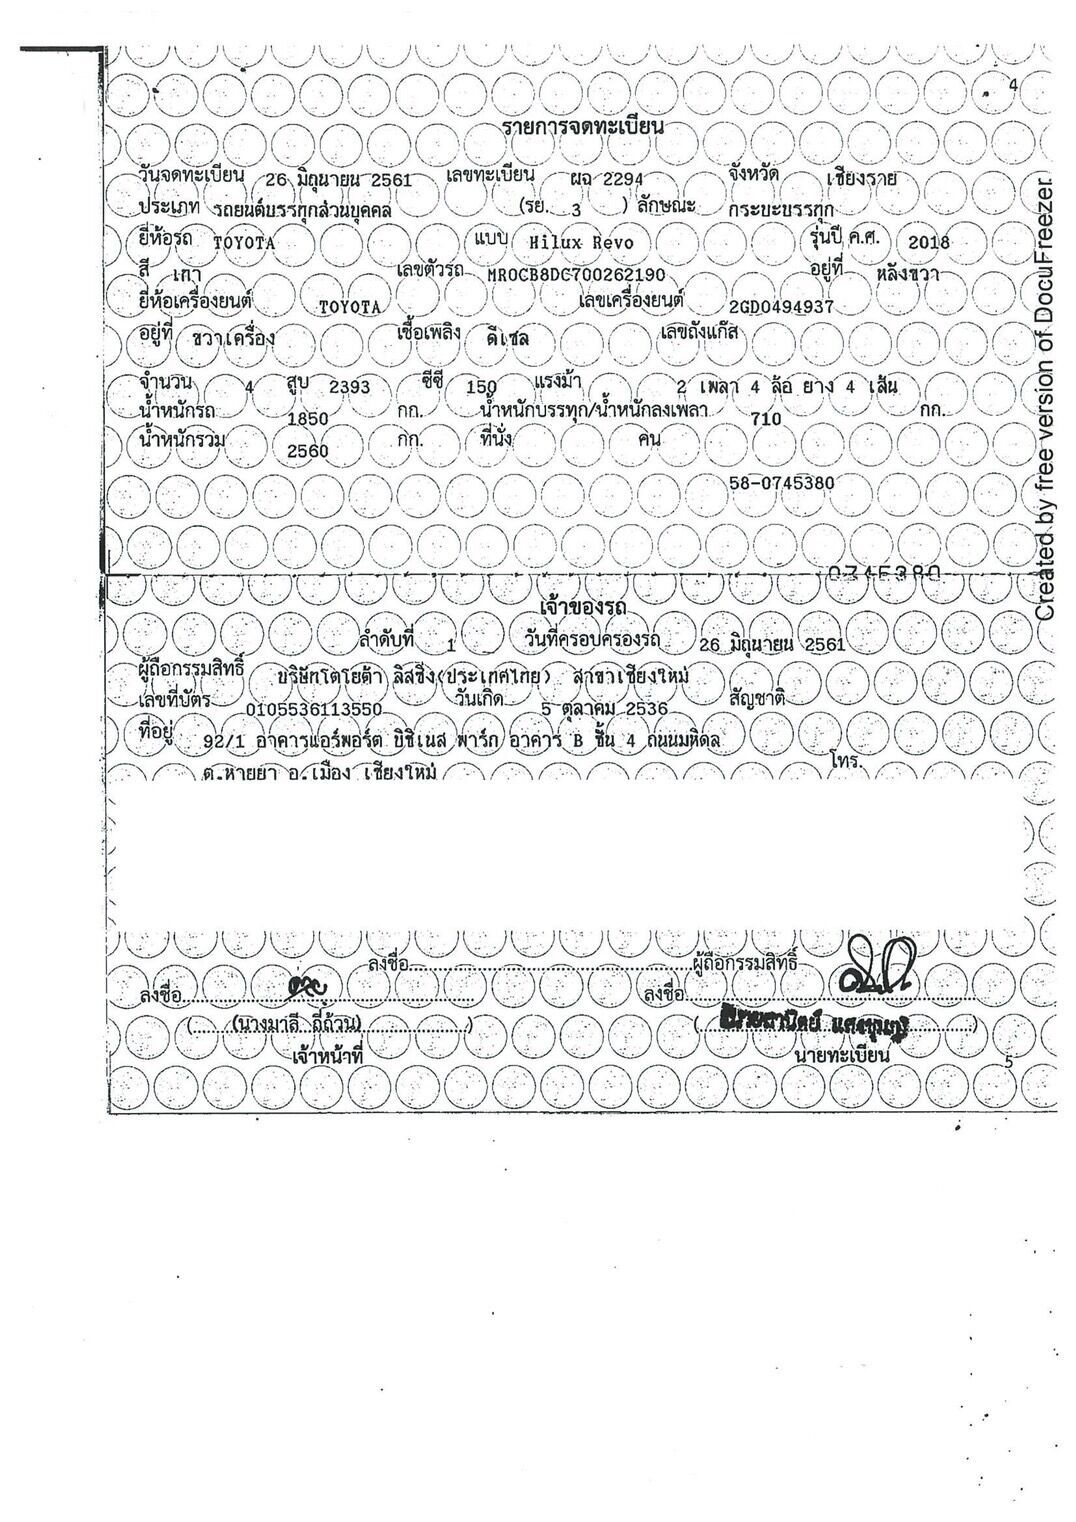 4
รายการจดทะเบียน
วันจดทะเบียน 26 มิถุนายน 2561 เลขทะเบียน ผฉ 2294 จังหวัด เชียงราย
ประเภท รถยนต์บรรทุกส่วนบุคคล (รย. 3 ) ลักษณะ กระบะบรรทุก
ยี่ห้อรถ TOYOTA แบบ Hilux Revo รุ่นปี ค.ศ. 2018
สี เทา เลขตัวรถ MR0CB8DC700262190 อยู่ที่ หลังขวา
ยี่ห้อเครื่องยนต์ TOYOTA เลขเครื่องยนต์ 2GD0494937
อยู่ที่ ขวาเครื่อง เชื้อเพลิง ดีเซล เลขถังแก๊ส
จำนวน 4 สูบ 2393 ซีซี 150 แรงม้า 2 เพลา 4 ล้อ ยาง 4 เส้น
น้ำหนักรถ 1850 กก. น้ำหนักบรรทุก/น้ำหนักลงเพลา 710 กก.
น้ำหนักรวม 2560 กก. ที่นั่ง คน
58-0745380
0745380
เจ้าของรถ
ลำดับที่ 1 วันที่ครอบครองรถ 26 มิถุนายน 2561
ผู้ถือกรรมสิทธิ์ บริษัทโตโยต้า ลิสซิ่ง(ประเทศไทย) สาขาเชียงใหม่
เลขที่บัตร 0105536113550 วันเกิด 5 ตุลาคม 2536 สัญชาติ
ที่อยู่ 92/1 อาคารแอร์พอร์ต บิซิเนส พาร์ก อาคาร B ชั้น 4 ถนนมหิดล
ต.หายยา อ.เมือง เชียงใหม่ โทร.
ลงชื่อ ผู้ถือกรรมสิทธิ์
ลงชื่อ ลงชื่อ
(นางมาลี ถี่ถ้วน)
เจ้าหน้าที่ นายทะเบียน
5
Created by free version of DocuFreezer